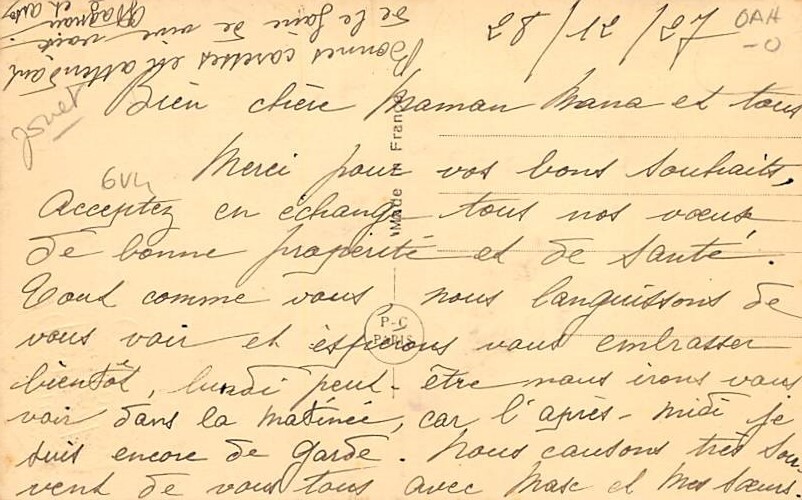 28/12/27
OAH
-0
Jouet
6VL
Bien chère Maman Mana et tous
Merci pour vos bons souhaits,
Acceptez en échange tous nos vœux
de bonne properité et de santé.
Tout comme vous, nous languissons de
vous voir et éspérons vous embrasser
bientôt, lundi peut-être nous irons vous
voir dans la matinée, car l'après-midi je
suis encore de garde. Nous causons très sou
vent de vous tous avec Marc et Mes sœurs.
Bonnes caresses en attendant
de le faire de vive voix.
Magnan
et
Made in France
P-C
PARIS